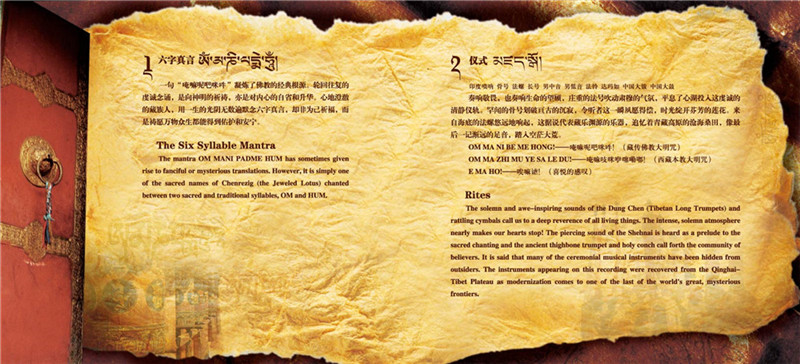 1 六字真言 ཨོཾ་མ་ཎི་པདྨེ་ཧཱུྃ།
一句“唵嘛呢叭咪吽”凝炼了佛教的经典根源:轮回往复的
度诚念诵,是向神明的祈祷,亦是对内心的自省和升华。心地澄澈
的藏族人,用一生的光阴无数遍默念六字真言,却非为己祈福,而
是祷愿万物众生都能得到佑护和安宁。
The Six Syllable Mantra
The mantra OM MANI PADME HUM has sometimes given
rise to fanciful or mysterious translations. However, it is simply one
of the sacred names of Chenrezig (the Jeweled Lotus) chanted
between two sacred and traditional syllables, OM and HUM.
2 仪式
印度唢呐 骨号 法螺 长号 男中音 男低音 法铃 达玛如 中国大镲 中国大鼓
奏响敬畏,也奏响生命的望礼,庄重的法号吹动肃穆的气氛,平息了心潮投入这度诚的
OM MA NI BE ME HONG!——唵嘛呢叭咪吽!(藏传佛教大明咒)
OM MA ZHI MU YE SA LE DU!——唵嘛吱咪耶萨嘞嘟!(西藏本教大明咒)
E MA HO!——唉嘛谑!(喜悦的感叹)
Rites
The solemn and awe-inspiring sounds of the Dung Chen (Tibetan Long Trumpets) and
rattling cymbals call us to a deep reverence of all living things. The intense, solemn atmosphere
nearly makes our hearts stop! The piercing sound of the Shehnai is heard as a prelude to the
sacred chanting and the ancient thighbone trumpet and holy conch call forth the community of
believers. It is said that many of the ceremonial musical instruments have been hidden from
outsiders. The instruments appearing on this recording were recovered from the Qinghai-
Tibet Plateau as modernization comes to one of the last of the world's great, mysterious
frontiers.